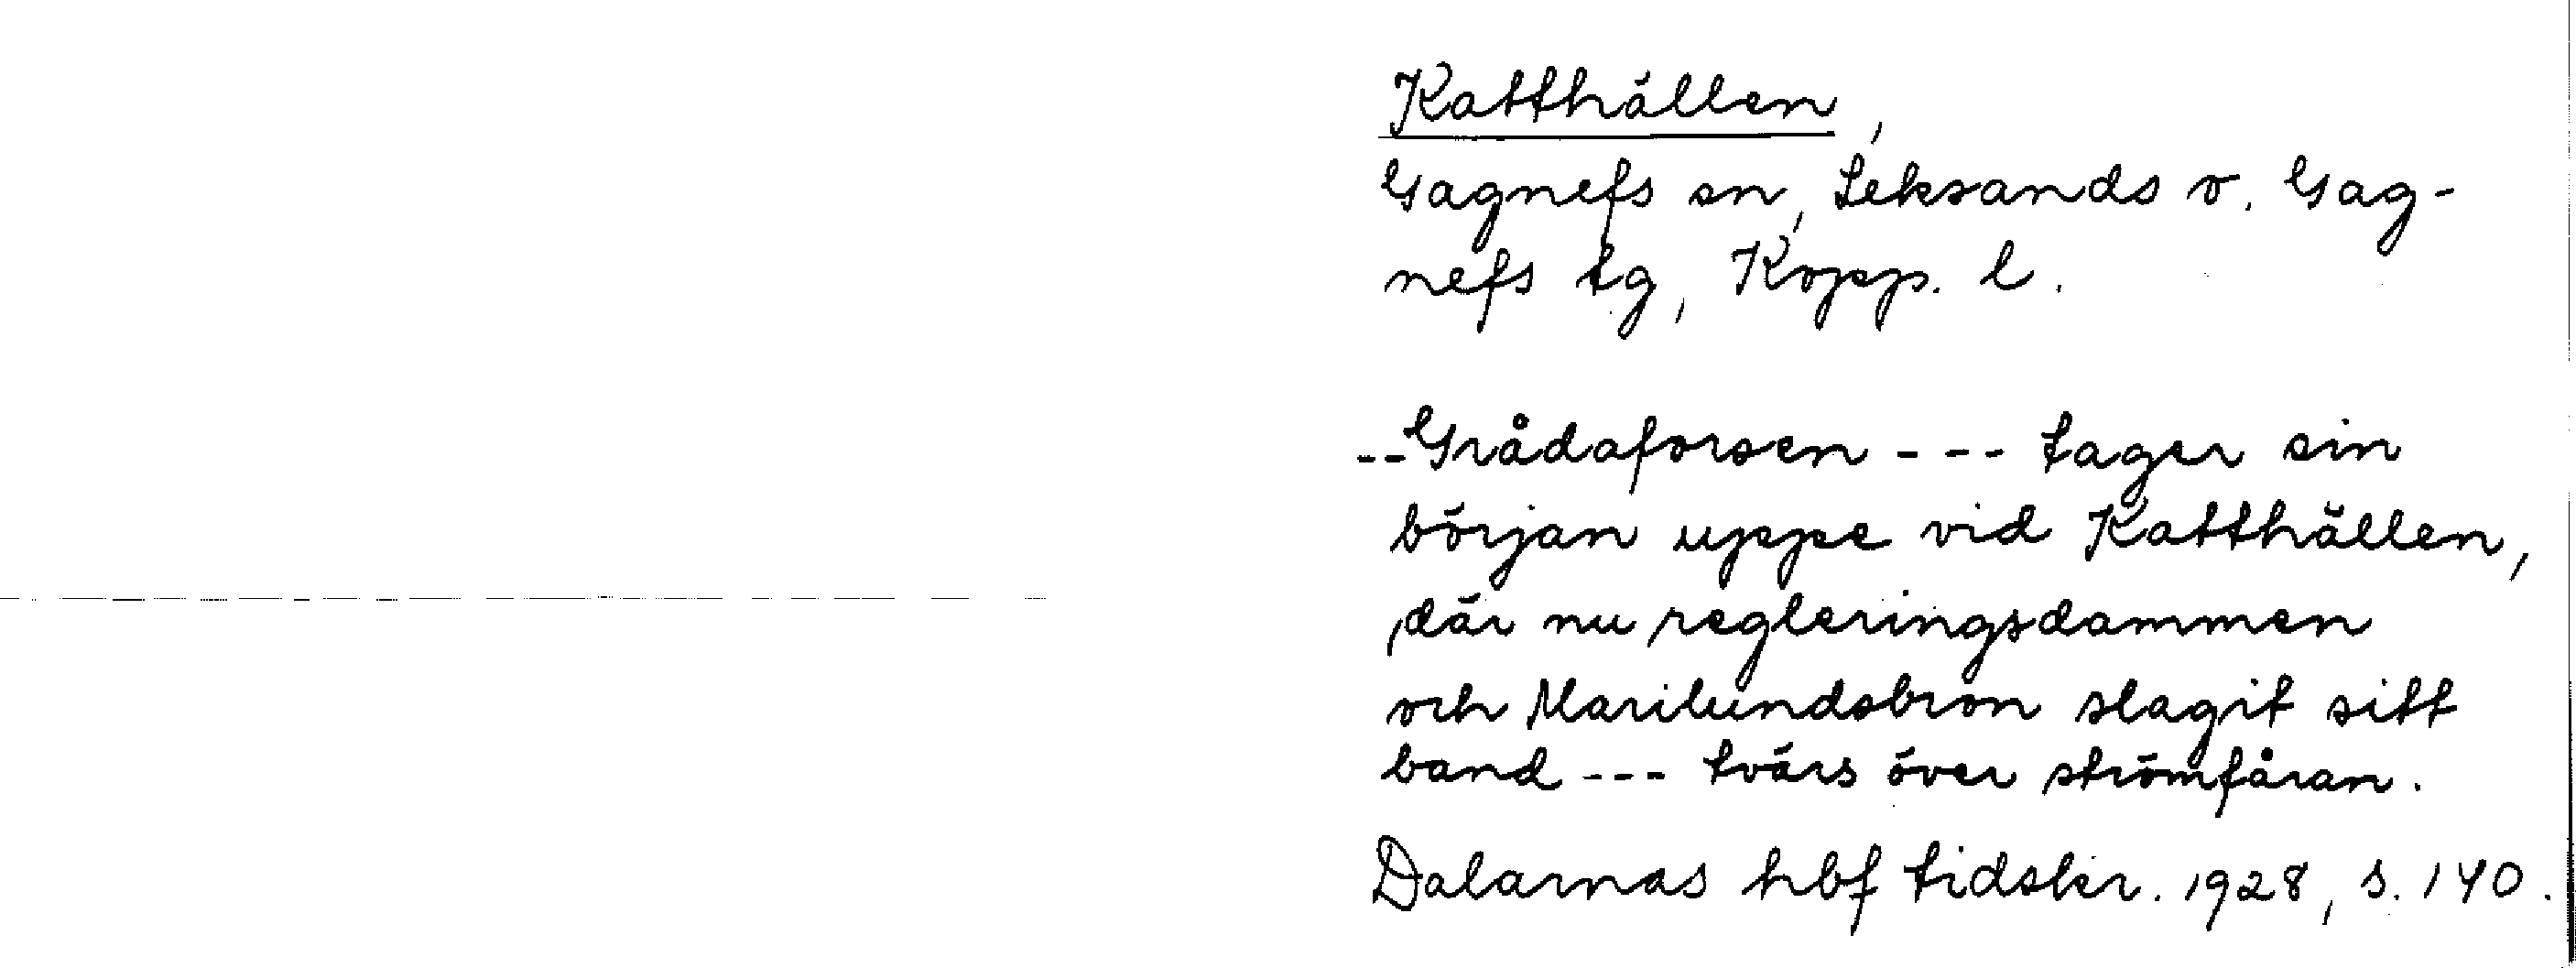 Katthällen,
Gagnefs sn, Leksands o. Gag-
nefs tg, Kopp. l.
-- Grådaforsen --- tager sin
början uppe vid Katthällen,
där nu regleringsdammen
och Marilundsbron slagit sitt
band --- tvärs över strömfåran.
Dalarnas hbf tidskr. 1928, s. 140.